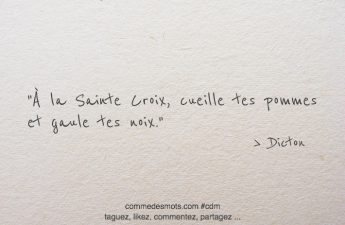 "À la Sainte Croix, cueille tes pommes
et gaule tes noix."
> Dicton
commedesmots.com #cdm
taguez, likez, commentez, partagez ...